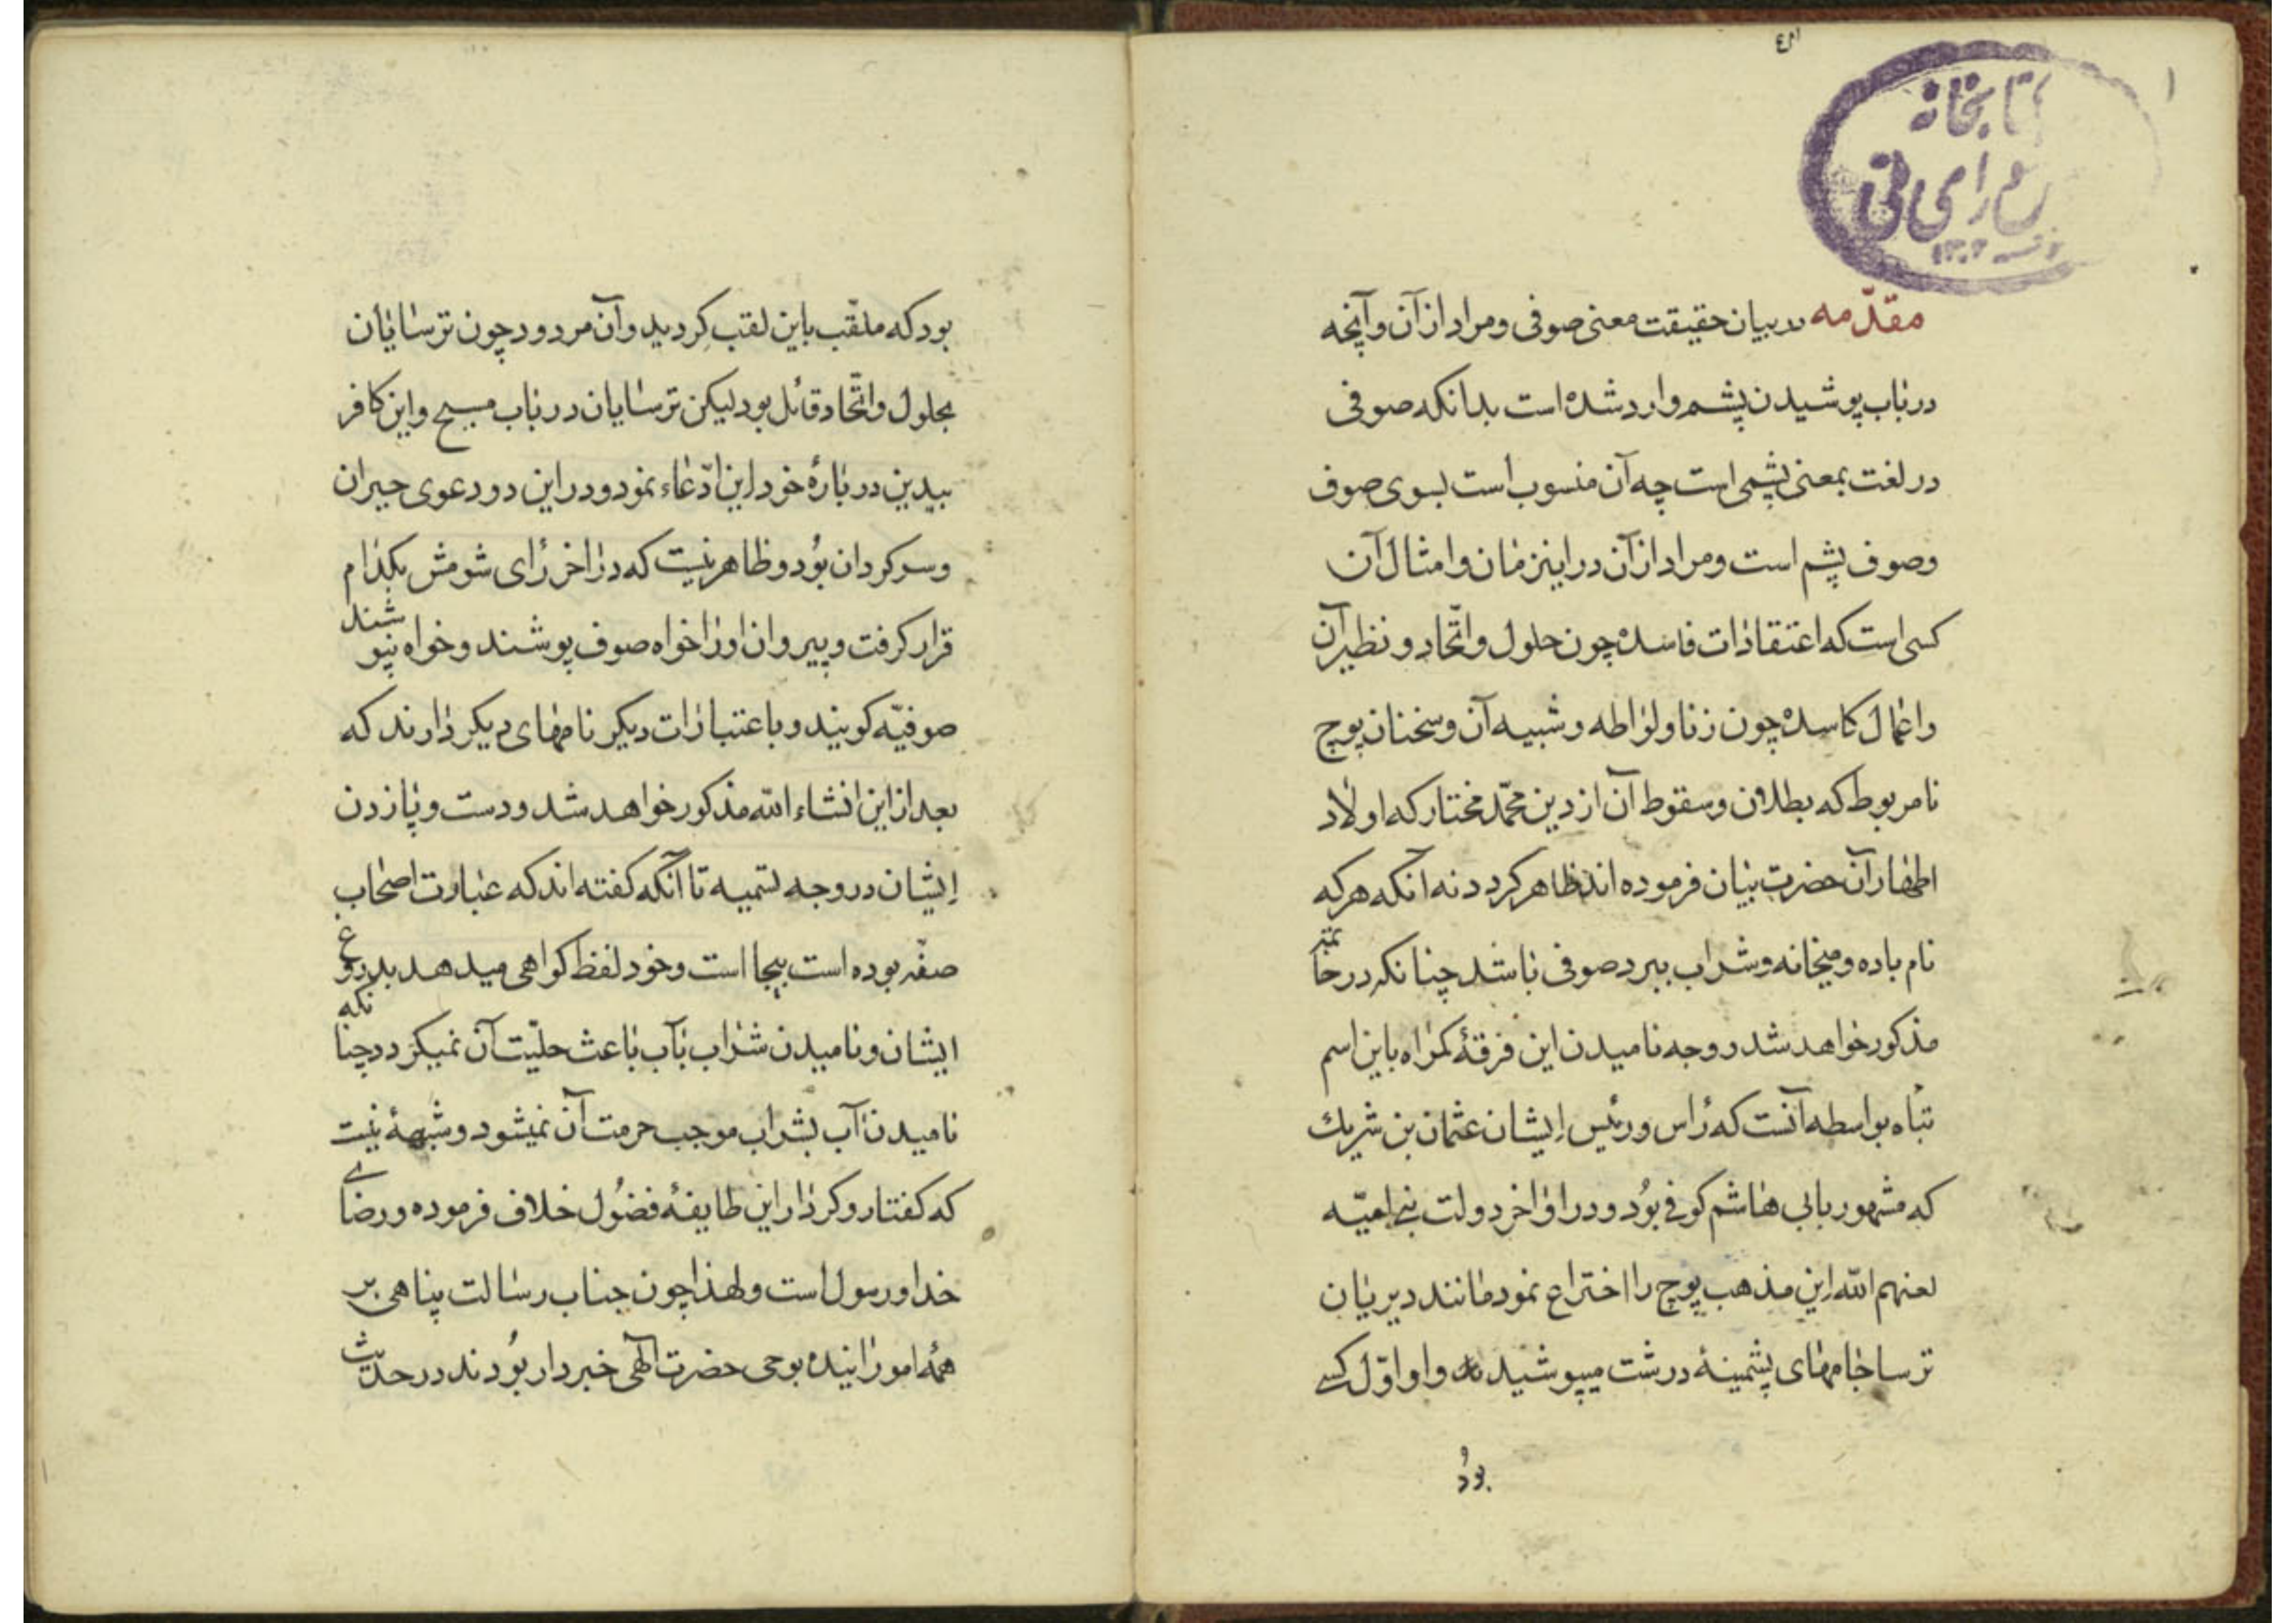 كتابخانه
مقدّمه در بیان حقیقت معنی صوفی و مراد از آن و آنچه
در باب پوشیدن پشم وارد شده است بدانکه صوفی
در لغت بمعنی پشمی است چه آن منسوب است بسوی صوف
وصوف پشم است و مراد از آن در این زمان و امثال آن
کسی است که اعتقادات فاسده چون حلول و اتّحاد و نظیر آن
و اعمال کاسده چون زنا و لواطه و شبیه آن و سخنان پوچ
نامربوط که بطلان و سقوط آن از دین محمّد مختار که اولاد
اطهار آن حضرت بیان فرموده اند ظاهر کردد نه آنکه هر که
نام باده و میخانه و شراب ببرد صوفی باشد چنانکه در خاتمه
مذکور خواهد شد و وجه نامیدن این فرقهٔ کمراه باین اسم
تباه بواسطه آنست که رأس و رئیس ایشان عثمان بن شریك
که مشهور بابی هاشم کوفی بُود و در اواخر دولت بنی امیّه
لعنهم الله این مذهب پوچ را اختراع نمود مانند دیریان
ترسا جامهای پشمینهٔ درشت میپوشید و او اوّل کسی
بودُ
بود که ملقّب باین لقب کردید و آن مردود چون ترسایان
بحلول و اتّحاد قائل بود لیکن ترسایان در باب مسیح و این کافر
بیدین در بارهٔ خود این ادّعاء نمود و در این دو دعوی حیران
و سرکردان بُود و ظاهر نیست که در آخر رای شومش بکدام
قرار کرفت و پیروان او را خواه صوف پوشند و خواه نپوشند
صوفیّه کویند و باعتبارات دیکر نامهای دیکر دارند که
بعد از این انشاء الله مذکور خواهد شد و دست و پا زدن
ایشان در وجه تسمیه تا آنکه کفته اند که عبارت اصحاب
صفّه بوده است بیجا است و خود لفظ کواهی میدهد بدروغ
ایشان و نامیدن شراب بآب باعث حلیّت آن نمیکردد چنانکه
نامیدن آب بشراب موجب حرمت آن نمیشود و شبههٔ نیست
که کفتار و کردار این طایفهٔ فضُول خلاف فرموده و رضای
خدا و رسول است و لهذا چون جناب رسالت پناهی بر
همهٔ امور آینده بوحی حضرت آلهی خبردار بُودند در حدیث